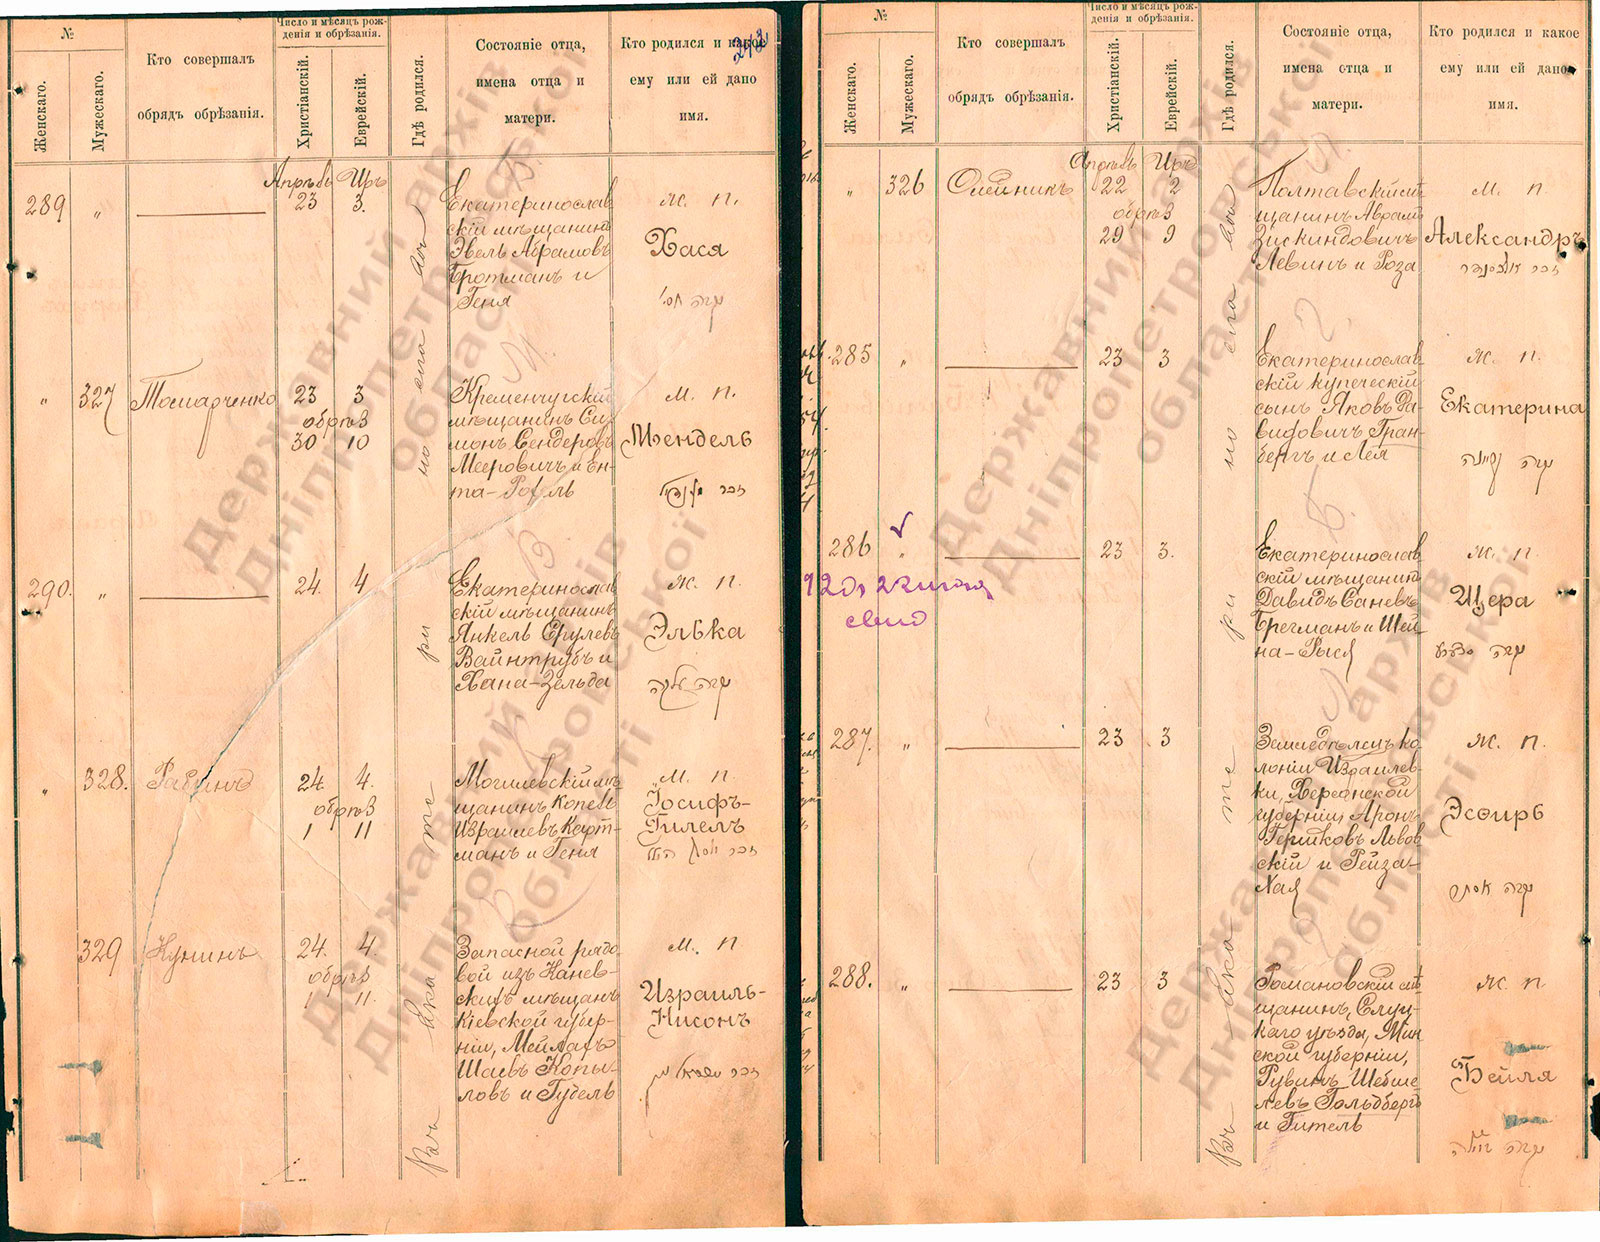 №
Женскаго.
Мужескаго.
Кто совершалъ
обрядъ обрѣзанія.
Число и мѣсяцъ рож-
денія и обрѣзанія.
Христіанскій.
Еврейскій.
Гдѣ родился.
Состояніе отца,
имена отца и
матери.
Кто родился и какое
ему или ей дано
имя.
Апрѣль Иръ
289 " 23 3.
Екатеринослав
скій мѣщанинъ
Эвель Абрамовъ
Бротманъ и
Геня
Ж. п.
Хася
" 327 Томарченко 23 3
обрѣз
30 10
Кременчугскій
мѣщанинъ Си
монъ Сендеровъ
Мееровичъ и Ен-
та-Рохль
м. п.
Мендель
290. " 24. 4
Екатеринослав
скій мѣщанинъ
Янкель Срулевъ
Вайнтрубъ и
Хана-Зельда
Ж. п.
Элька
" 328. Рабинъ 24 4.
обрѣз
1 11
Могилевскій мѣ
щанинъ Копель
Израилевъ Карт-
манъ и Геня
м. п
Іосифъ-
Гилелъ
329 Кунинъ 24. 4.
обрѣз
1 11.
Запасной рядо
вой изъ Канев-
скихъ мѣщанъ
Кіевской губер-
ніи, Мейлахъ
Шаевъ Копы-
ловъ и Гудель
м. п
Израиль-
Нисонъ
№
Женскаго.
Мужескаго.
Кто совершалъ
обрядъ обрѣзанія.
Число и мѣсяцъ рож-
денія и обрѣзанія.
Христіанскій.
Еврейскій.
Гдѣ родился.
Состояніе отца,
имена отца и
матери.
Кто родился и какое
ему или ей дано
имя.
Апрѣль Иръ
" 326 Олейникъ 22 2
обрѣз
29 9
Полтавскій мѣ
щанинъ Аврамъ
Зискиндовичъ
Левинъ и Роза
м. п.
Александръ
285 " 23 3
Екатеринослав
скій купеческій
сынъ Яковъ Да-
видовичъ Гран-
бергъ и Лея
Ж. п.
Екатерина
286 " 23 3.
Екатеринослав
скій мѣщанинъ
Давидъ Саневъ
Брегманъ и Шей
на-Рыся
Ж. п
Щера
287. " 23 3
Земледѣлецъ ко
лоніи Израилев-
ки, Херсонской
губерніи, Аронъ
Гершковъ Львов
скій и Рейза-
Хая
Ж. п.
Эсѳирь
288. " 23 3
Романовскій мѣ
щанинъ, Слуц-
каго уѣзда, Мин
ской губерніи,
Рувинъ Шебше-
левъ Гольдбергъ
и Гитель
Ж. п
Бейля
Державний архів
Дніпропетровської
області